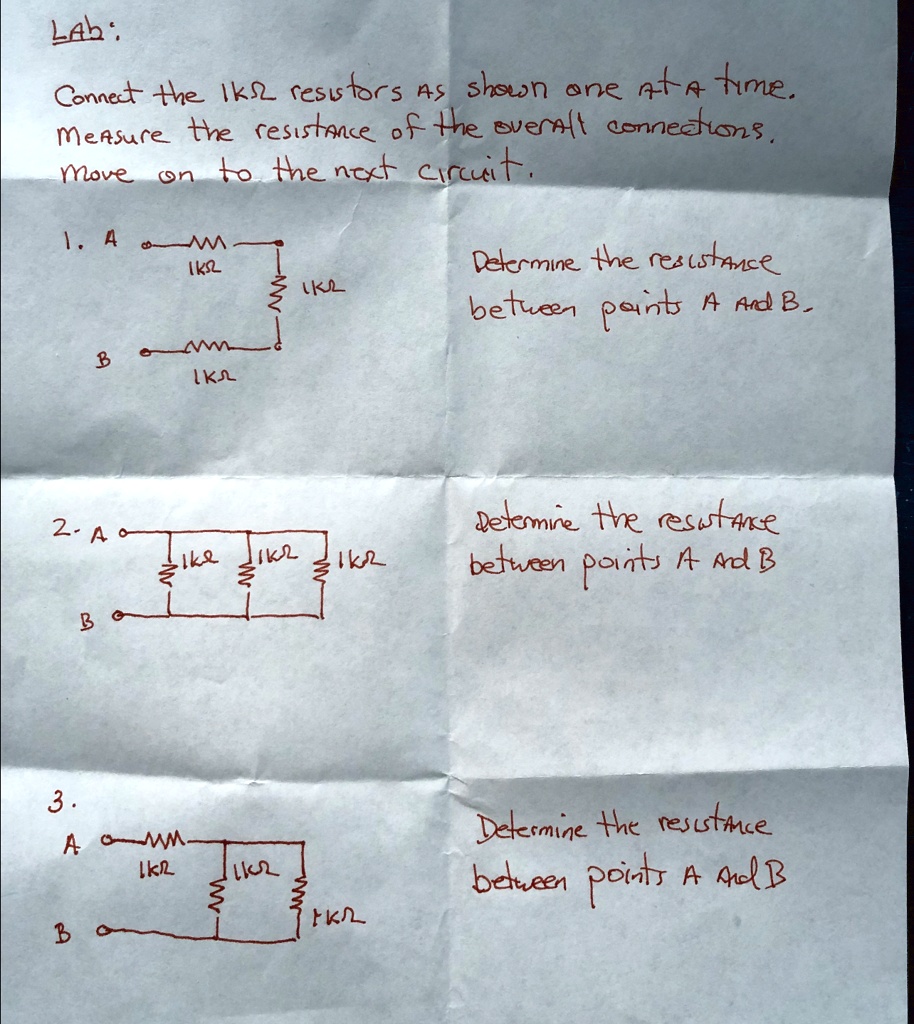 LAb:
Connect the 1kΩ resistors As shown one At A time.
MeAsure the resistAnce of the overAll connections.
Move on to the next circuit.
1. A
1kΩ
1kΩ
B
1kΩ
Determine the resistAnce
between points A And B.
2. A
1kΩ 1kΩ 1kΩ
B
Determine the resistAnce
between points A And B
3.
A
1kΩ 1kΩ
1kΩ
B
Determine the resistAnce
between points A And B